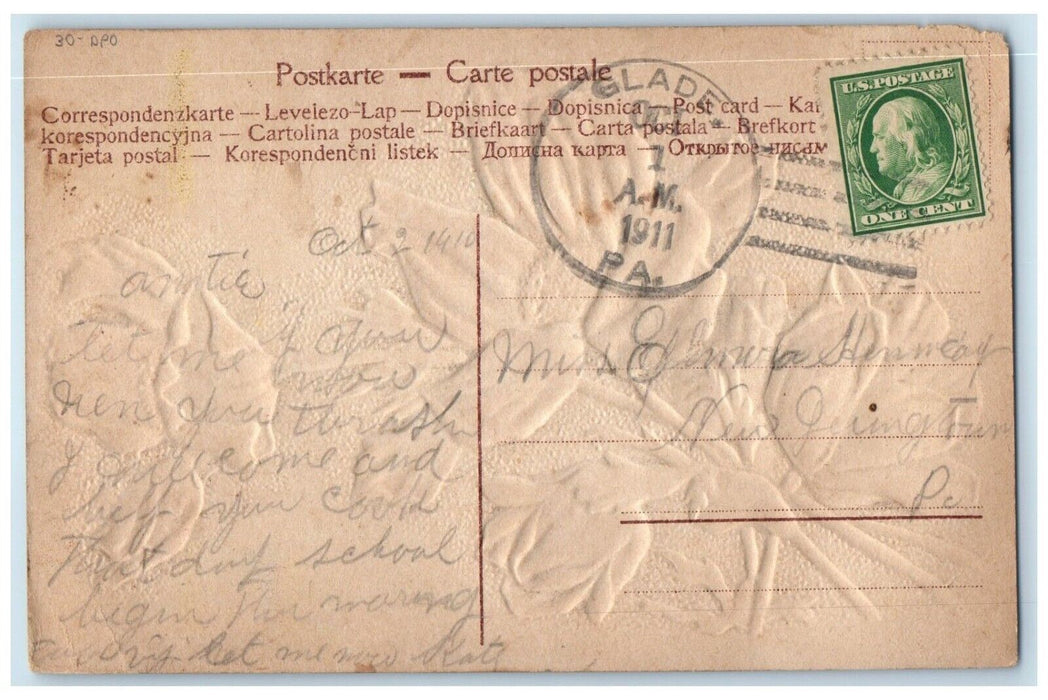 30-DPO
Postkarte — Carte postale
Correspondenzkarte — Levelezo-Lap — Dopisnice — Dopisnica — Post card — Kar
korespondencyjna — Cartolina postale — Briefkaart — Carta postala — Brefkort
Tarjeta postal — Korespondenčni listek — Дописна карта — Открытое писм
GLADE
OCT
A.M.
1911
PA.
U.S. POSTAGE
ONE CENT
Oct 2 1911
auntie
if you
let me now
wen you thrash
I will come and
help you cook
that day school
begin this morning
let me now Kate
Miss Elmira
New
Pa